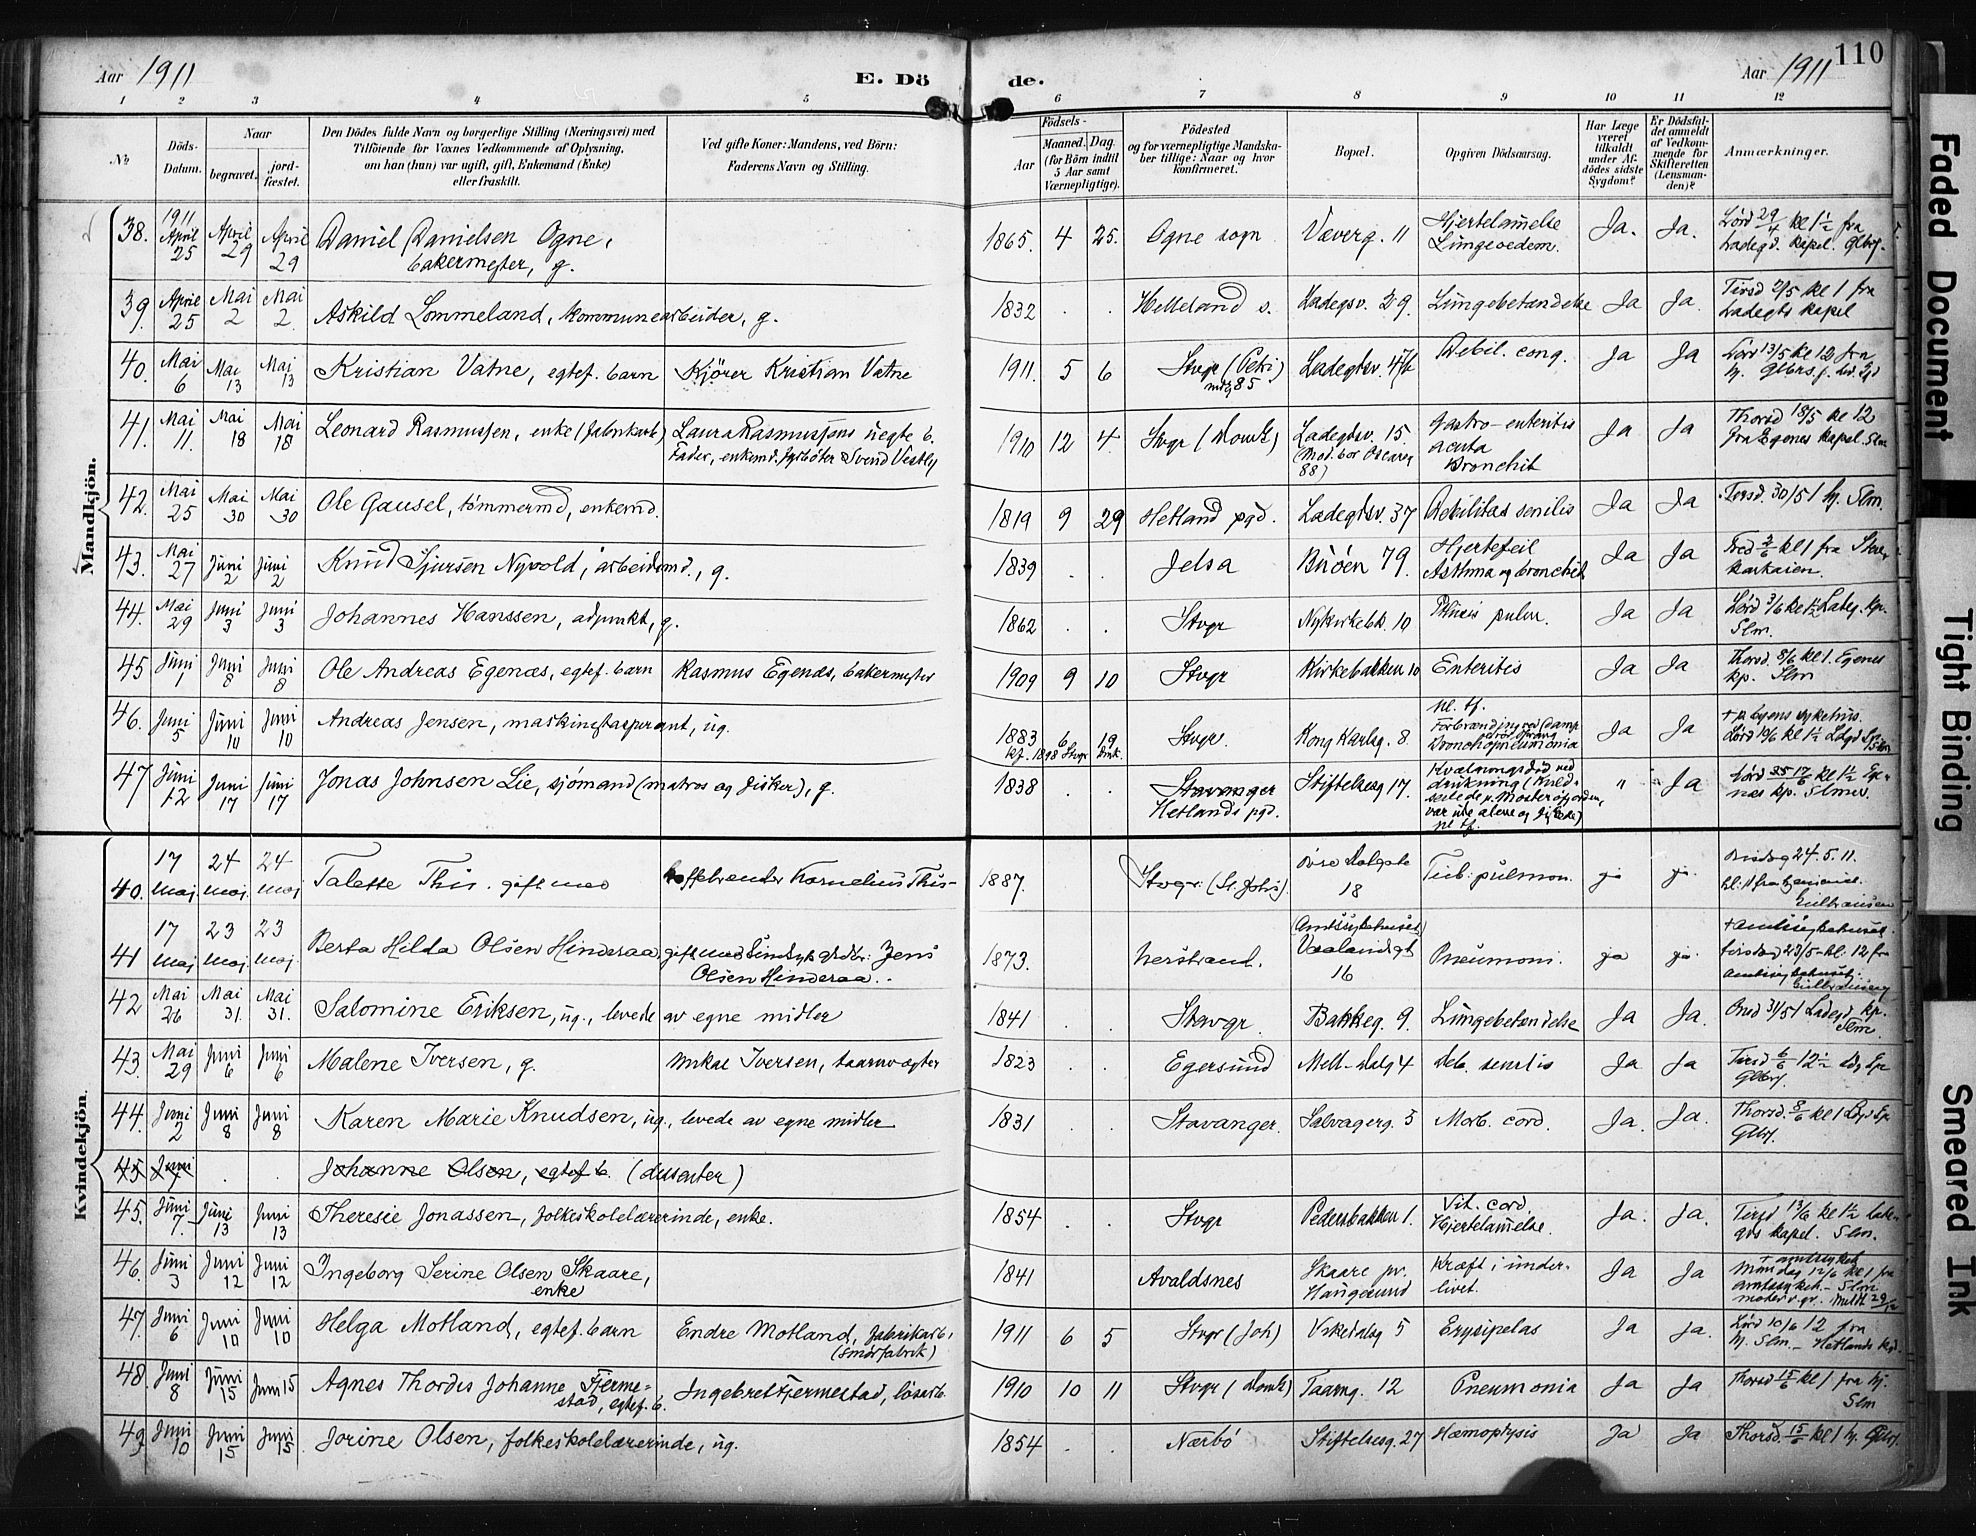 Aar 1911
E. Döde.
Aar 1911
110
1 2 3 4 5 6 7 8 9 10 11 12
№
Döds-Datum.
Naar
begravet.
jord-fæstet.
Den Dödes fulde Navn og borgerlige Stilling (Næringsvei) med
Tilföiende for Voxnes Vedkommende af Oplysning,
om han (hun) var ugift, gift, Enkemand (Enke)
eller fraskilt.
Ved gifte Koner: Mandens, ved Börn:
Faderens Navn og Stilling.
Födsels-
Aar
Maaned. Dag.
(for Börn indtil
5 Aar samt
Værnepligtige).
Födested
og for værnepligtige Mandska-
ber tillige: Naar og hvor
konfirmeret.
Bopæl.
Opgiven Dödsaarsag.
Har Læge
været
tilkaldt
under Af-
dödes sidste
Sygdom?
Er Dödsfal-
det anmeldt
af Vedkom-
mende for
Skifteretten
(Lensman-
den)?
Anmærkninger.
Mandkjön.
38. 1911 April 25 April 29 April 29 Daniel Danielsen Ogne, bakermester, g. 1865. 4 25. Ogne sogn Væverg. 11 Hjertelammelse Lungeoedem. Ja. Ja. Lörd 29/4 kl 1½ fra Ladegd. kapel. Glbrs.
39. April 25 Mai 2 Mai 2 Askild Lommeland, kommunearbeider, g. 1832 . . Helleland s. Ladegsv. 29. Lungebetændelse Ja Ja. Tirsd 2/5 kl 1 fra Ladegts kapel
40. Mai 6 Mai 13 Mai 13 Kristian Vatne, egtef. barn Kjörer Kristian Vatne 1911. 5 6 Stvgr (Petri) 85 Ladegtsv. 47 Debil. cong. Ja Ja Lörd 13/5 kl 12 fra hj.
41. Mai 11. Mai 18 Mai 18 Leonard Rasmussen, Laura Rasmussens uegte b. Fader, enkemd. fyrböter Svend Vestly 1910 12 4. Stvgr (Domk) Ladegtsv. 15. (Mod. bor Oscarsg 88) Gastro-enteritis acuta Bronchit Ja Ja Thorsd 18/5 kl 12 fra Egenes kapel. Slm
42. Mai 25 Mai 30 Mai 30 Ole Gausel, tömmermd, enkemd. 1819 9 29 Hetland pgd. Ladegtsv. 37 Debilitas senilis Ja Ja Tirsd. 30/5 1 hj. Slm.
43. Mai 27 Juni 2 Juni 2 Knud Sjursen Nyvold, arbeidsmd., g. 1839 . . Jelsa Buöen 79. Hjertefeil Asthma og bronchit Ja Ja Fred 2/6 kl 1 fra
44. Mai 29 Juni 3 Juni 3 Johannes Hanssen, adjunkt, g. 1862 . . Stvgr Nykirkebk. 10 Phtisis pulm. Ja Ja Lörd 3/6 kl 1½ Ladeg. kp. Slm.
45 Juni 1 Juni 8 Juni 8 Ole Andreas Egenæs, egtef. barn Rasmus Egenæs, bakermester 1909 9 10 Stvgr Kirkebakken 10 Enteritis Ja Ja Thorsd. 8/6 kl 1. Egenes kp. Slm
46. Juni 5 Juni 10 Juni 10 Andreas Jensen, maskinistaspirant, ug. 1883 6 19 kf. 1898 Stvgr Domk. Stvgr. Kong Karlsg. 8. Forbrænding ved damp Bronchopneumonia Ja Ja + p. byens sykehus. Lörd 10/6 kl 1½
47 Juni 12 Juni 17 Juni 17 Jonas Johnsen Lie, sjömand (matros og fisker), g. 1838 . . Stavanger Hetlands pgd. Stiftelsesg 17. Kvælningsdöd ved drukning " Ja Lörd 17/6 kl 1½ Ege-næs kp. Slmn.
Kvindekjön.
40. 17 maj. 24 maj. 24 maj Talette This. gift med kornelius This- 1887. Stvgr: (St. Johs) Övre Dalgate 18 Tub: pulmon. ja ja. Onsdag 24.5.11. Gulbransen
41 17 maj 23 maj. 23 maj. Berta Hilda Olsen Hinderaa, gift med Jens Olsen Hinderaa. 1873. Nerstrand. (Amtssykehuset) Vaalandsgt 16 Pneumoni. ja ja. + amtssykehuset. tirsdag 23/5 - kl. 12 fra amtssykehuset. Gulbransen
42 Mai 26 Mai 31. Mai 31. Salomine Eriksen, ug., levede av egne midler 1841 . . Stavgr. Bakkeg. 9. Lungebetændelse Ja Ja. Onsd 31/5 1 Ladegd kp. Slm
43. Mai 29 Juni 6 Juni 6 Malene Iversen, g. Mikal Iversen, taarnvægter 1823 . . Egersund Mell-dalg 4 Deb. senilis Ja Ja Tirsd 6/6 12½ Glbrs.
44. Juni 2 Juni 8 Juni 8 Karen Marie Knudsen, ug., levede av egne midler 1831 . . Stavanger. Salvagerg. 5 Morb. cord. Ja. Ja. Thorsd. 8/6 kl 1 Glbrs.
45 Juni 7 . . Johanne Olsen, egtef. b. (dissenter)
45. Juni 7. Juni 13 Juni 13 Theresie Jonassen, folkeskolelærerinde, enke. 1854 . . Stvgr Pedersbakken 1. Vit. cord. Hjertelammelse. Ja. Ja. Tirsd 13/6 kl 1½ lade-gds kapel. Slm.
46. Juni 3 Juni 12 Juni 12 Ingeborg Serine Olsen Skaare, enke 1841 Avaldsnes Skaare pr. Haugesund Kræft i under-livet. Ja Ja + amtssyket Mandag 12/6 kl 1 fra amtssykeh. - Slm
47. Juni 6 Juni 10 Juni 10 Helga Motland, egtef. barn Endre Motland, fabrikarb. (smörfabrik) 1911 6 5 Stvgr (Joh) Vikedalsg 5 Erysipelas Ja Ja. Lörd 10/6 12 fra hj. Slm. - Hetlands kgd.
48. Juni 8 Juni 15 Juni 15 Agnes Thordis Johanne Tjerme-stad, egtef. b. Ingebret Tjermestad, lösarb. 1910 10 11 Stvgr (Domk) Taarng. 12 Pneumonia Ja Ja Thorsd 15/6 kl 1 fra hj. Slm
49 Juni 10 Juni 15 Juni 15 Jorine Olsen, folkeskolelærerinde, ug. 1854 . . Nærbö Stiftelsesg. 27 Hæmoptysis Ja Ja Thorsd. 15/6 kl 1 hj. Glbrs.
Faded Document
Tight Binding
Smeared Ink